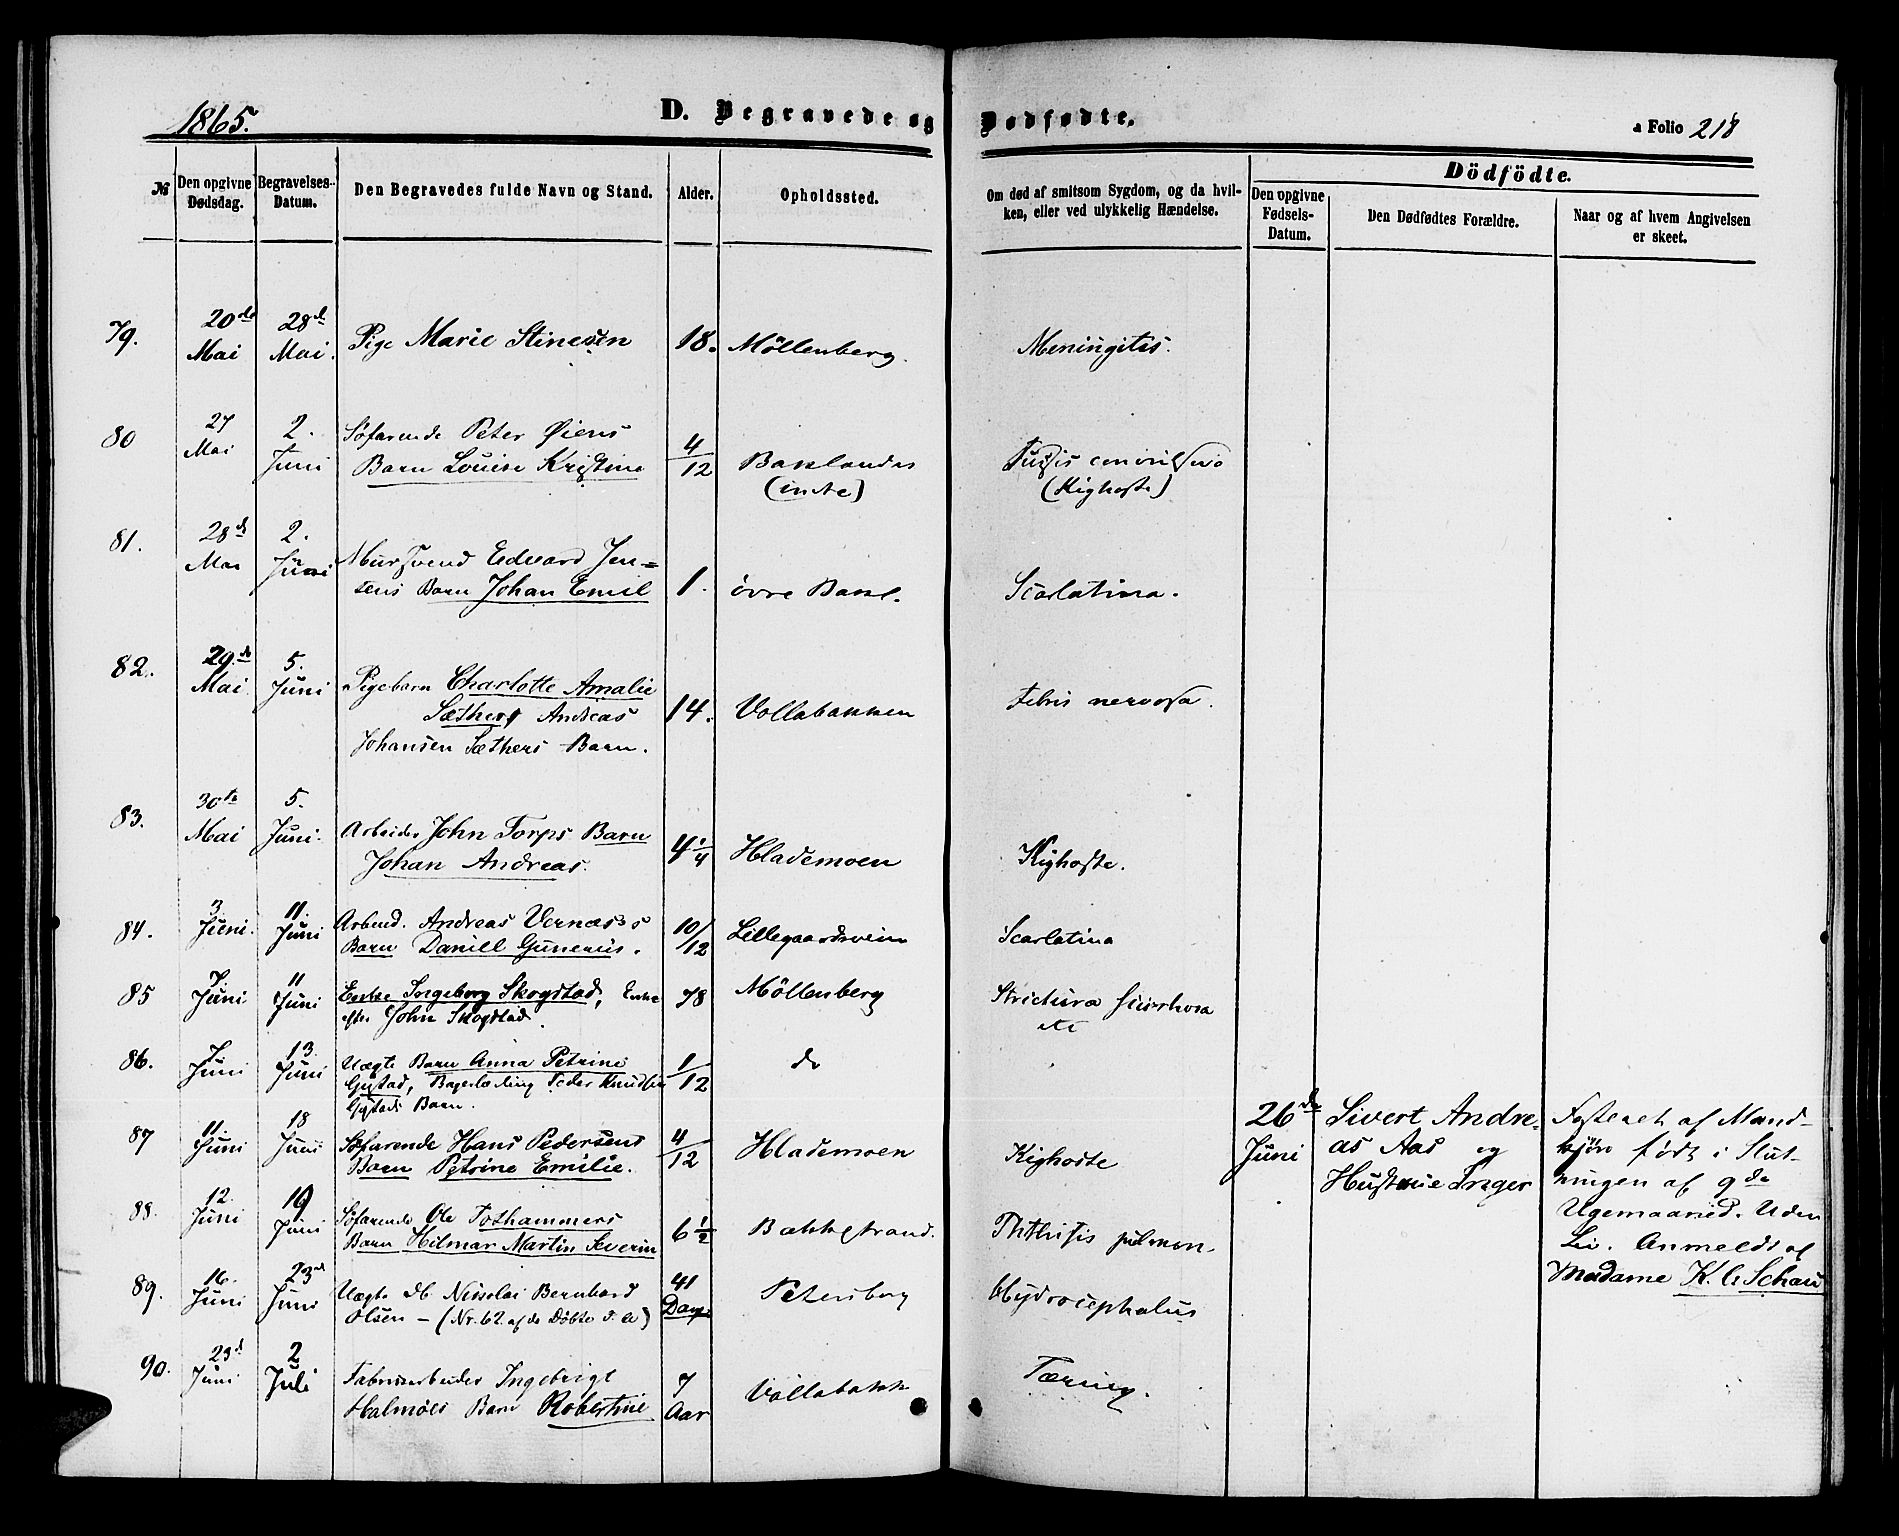 1865.
D. Begravede og Dødfødte.
a Folio 218
Dödfödte.
№ Den opgivne Dødsdag. Begravelses-Datum. Den Begravedes fulde Navn og Stand. Alder. Opholdssted. Om død af smitsom Sygdom, og da hvilken, eller ved ulykkelig Hændelse. Den opgivne Fødsels-Datum. Den Dødfødtes Forældre. Naar og af hvem Angivelsen er skeet.
79. 20de Mai 28de Mai. Pige Marie Stinesen 18. Möllenberg. Meningitis.
80 27 Mai 2. Juni Söfarende Peter Øiens
Barn Louise Kristine 4/12 Baklandet
(indre) Tussis convulsiva
(Kighoste)
81. 28de Mai 2. Juni Mursvend Edvard Jen=
sens Barn Johan Emil 1. övre Bakl. Scarlatina.
82. 29de Mai 5. Juni Pigebarn Charlotte Amalie
Sæther, Andreas
Johansen Sæthers Barn. 14. Vollabakken Febris nervosa.
83. 30te Mai 5. Juni. Arbeider John Torps Barn
Johan Andreas. 4 1/4 Hlademoen Kighoste.
84. 3 Juni. 11. Juni Arbeid. Andreas Vernæs's
Barn Daniel Gunerius. 10/12 Lillegaardsveien Scarlatina
85 7. Juni 11 Juni Enke Ingeborg Skogstad, Enke
efter John Skogstad. 78 Möllenberg Strictura scirrhosa
etc
86. 7 Juni 13 Juni Uægte Barn Anna Petrine
Gystad, Bagerlærling Peder Knudsen
Gystads Barn. 1/12 do
87 11. Juni 18 Juni Söfarende Hans Pedersens
Barn Petrine Emilie. 4/12 Hlademoen Kighoste
88. 12. Juni 19 Juni Söfarende Ole Tothammers
Barn Hilmar Martin Severin 6 1/2 Bakkestrand. Phthisis pulmon.
89. 16. Juni 23de Juni Uægte db Nikolai Bernhard
Olsen – (Nr. 62. af de Döbte d. A.) 41 Dage Petersborg Hydrocephalus
90. 23d Juni 2 Juli Fabrikarbeider Ingebrigt
Halmöes Barn Robertine 7 Aar Vollabakk Tæring.
26de
Juni
Sivert Andre=
as Aas og
Hustrue Inger
Fosteret af Mand-
kjön födt i Slut-
ningen af 9de
Ugemaaned. Uden
Liv. Anmeldt af
Madame K. C. Schau